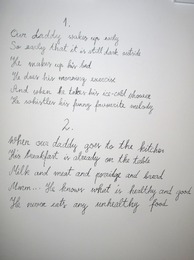 1.
Our daddy wakes up early
So early that it is still dark outside
He makes up his bed
He does his morning exercise
And when he takes his ice-cold shower
He whistles his funny favourite melody
2.
When our daddy goes to the kitchen
His breakfast is already on the table
Milk and meat and porridge and bread
Mmm... He knows what is healthy and good
He never eats any unhealthy food